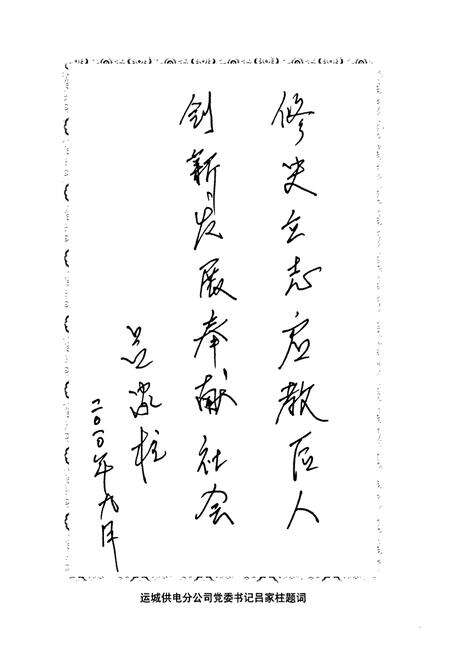 修史立志启教后人
创新发展奉献社会
吕家柱
年九月
运城供电分公司党委书记吕家柱题词